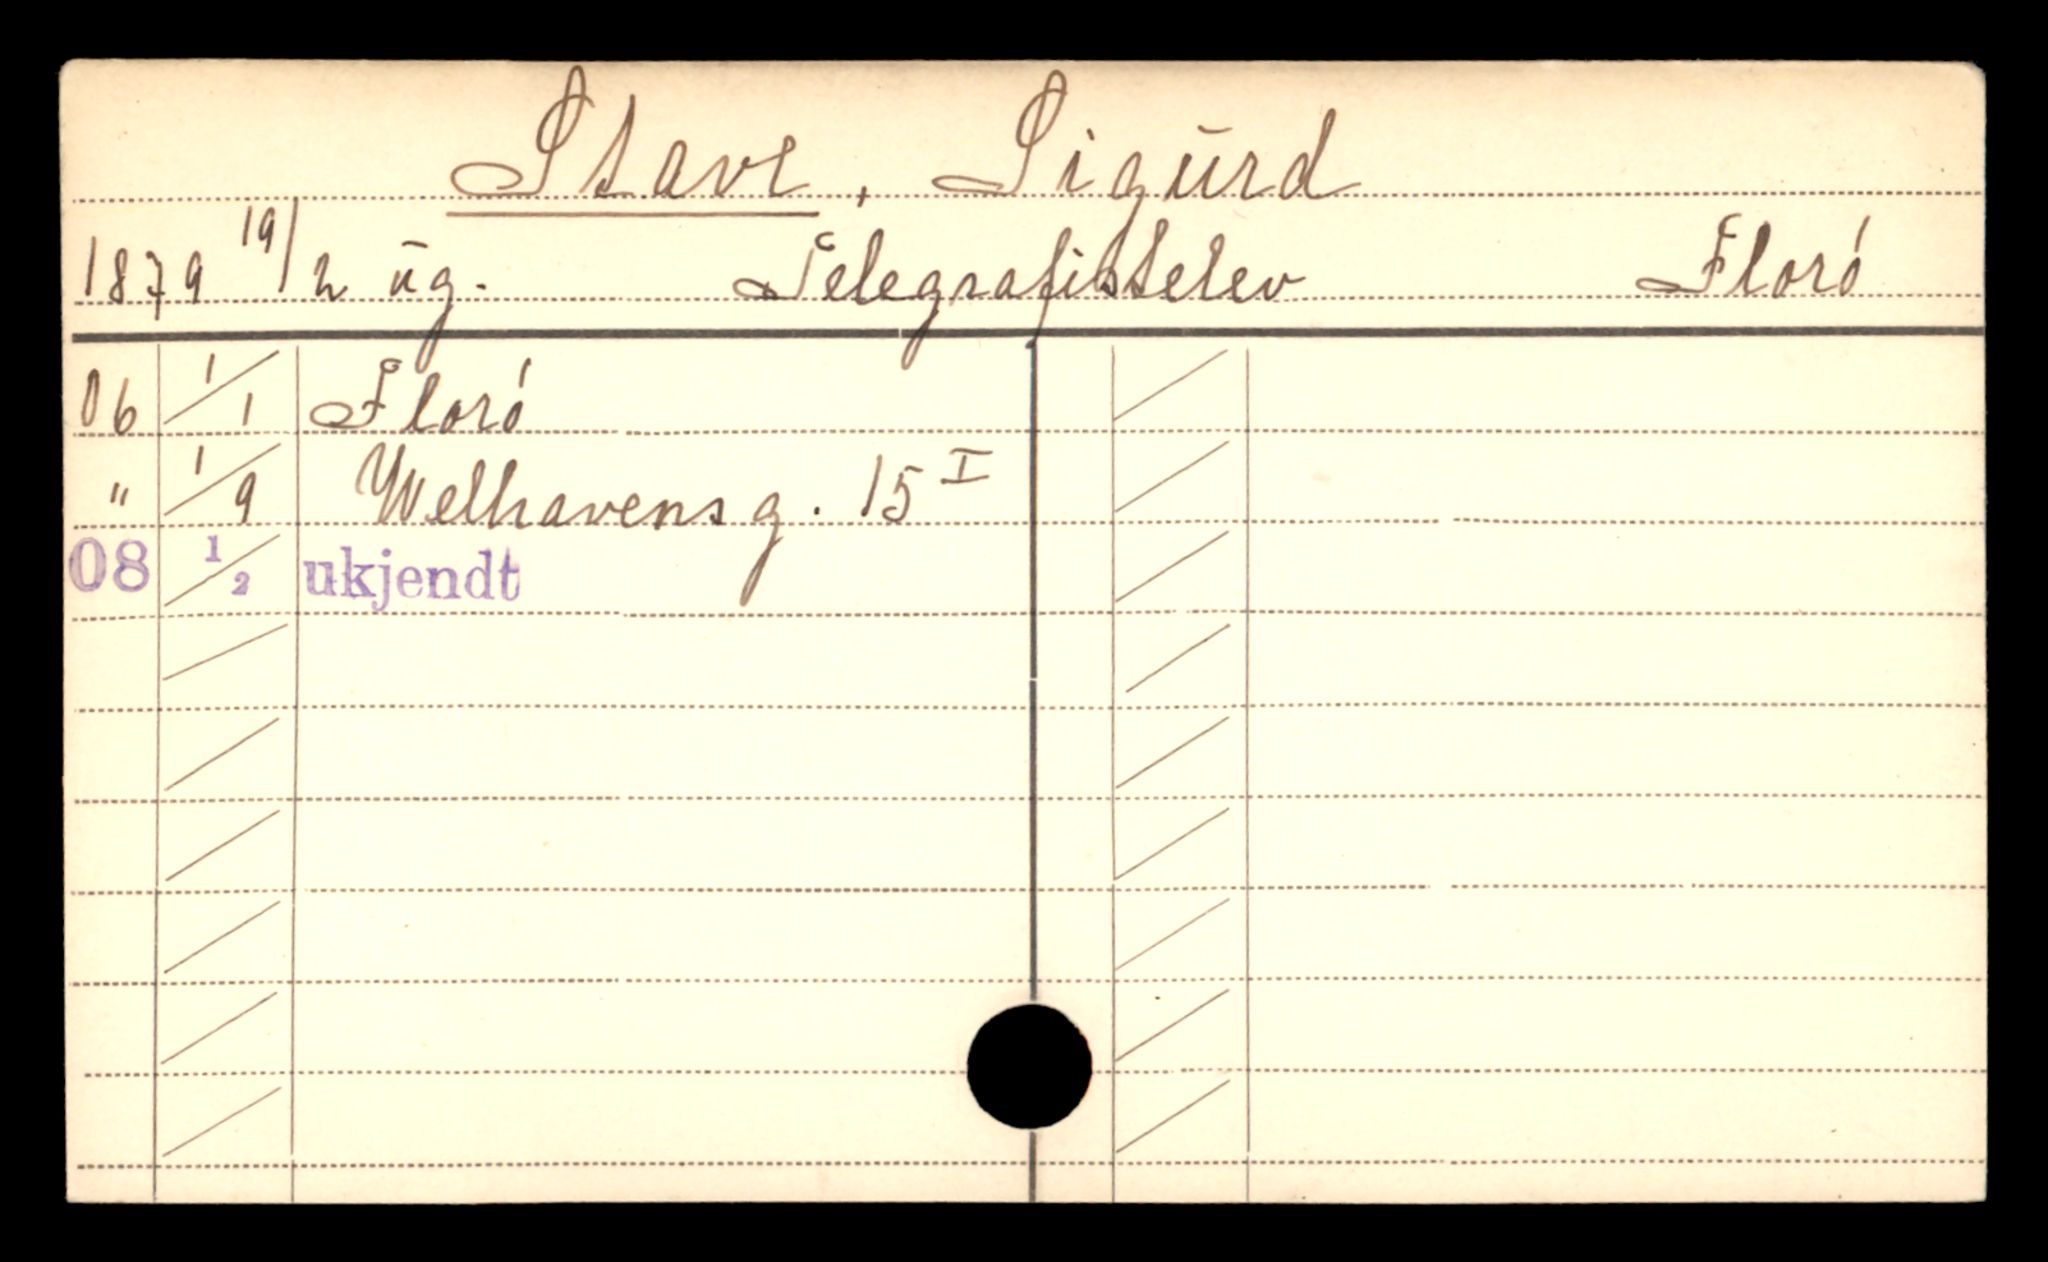 Stave, Sigurd
1879 19/2 ug. Telegrafistelev Florö
06 1/1 Florö
" 1/9 Welhavensg. 15 I
08 1/2 ukjendt